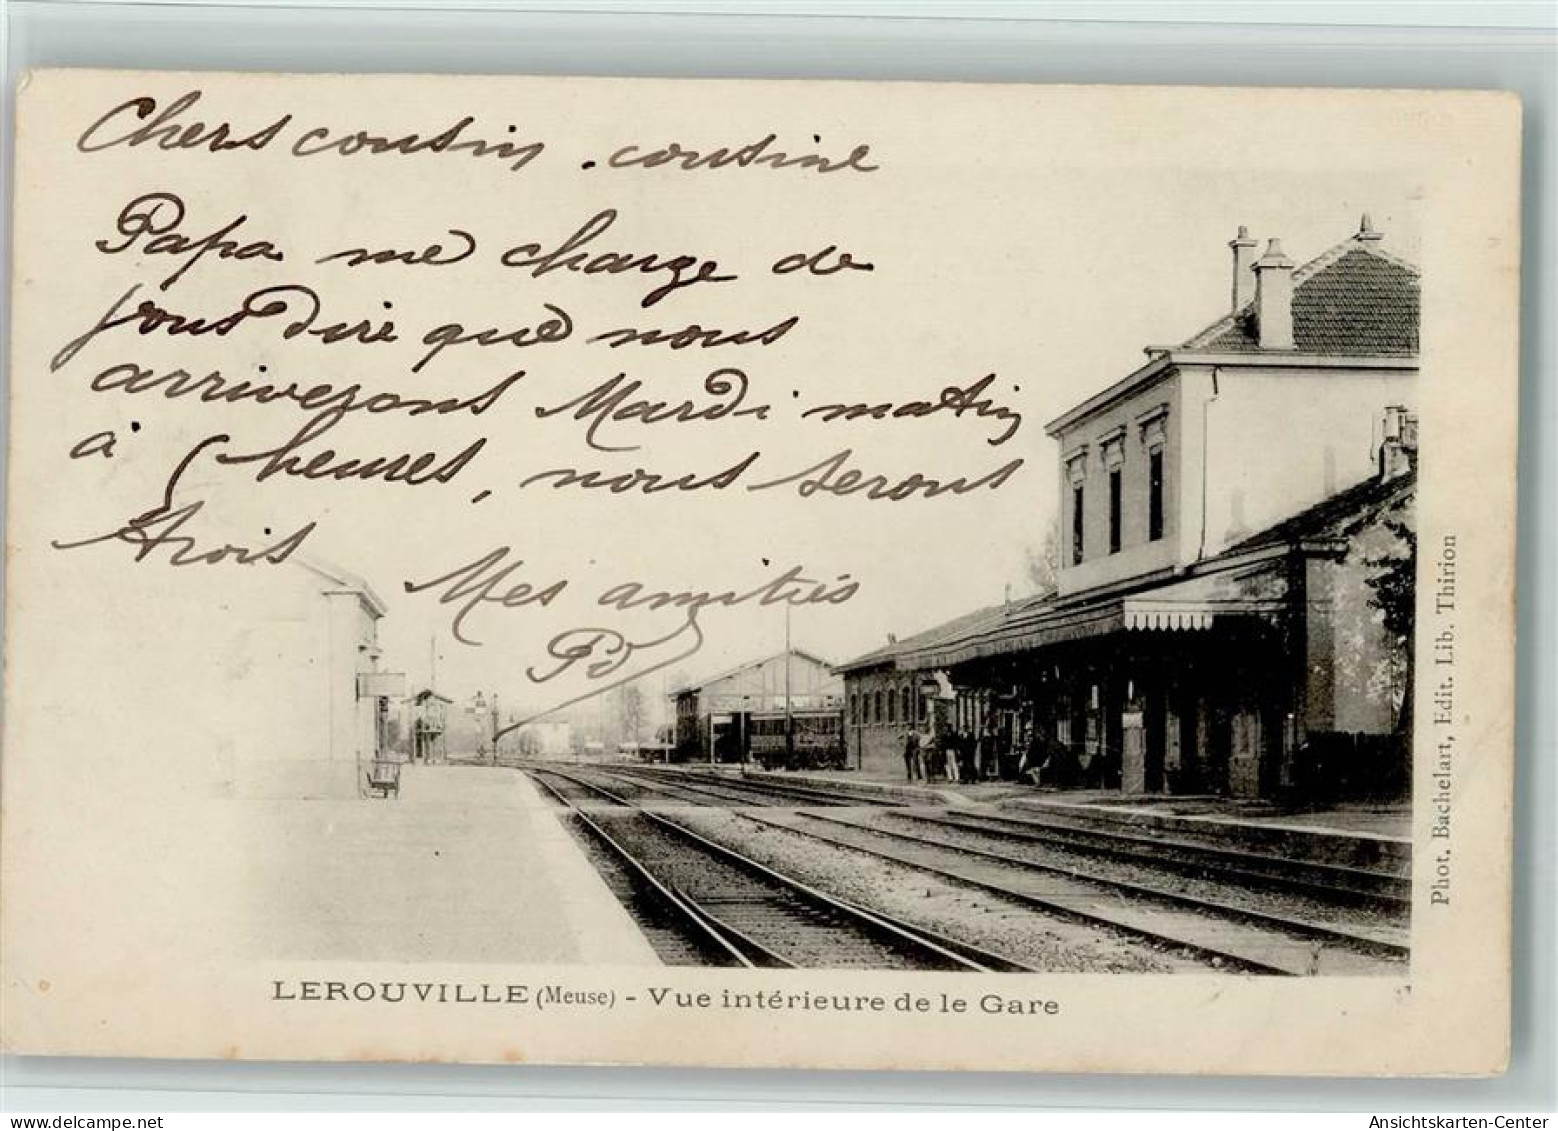 Chers cousin . cousine
Papa me charge de
vous dire que nous
arriverons Mardi matin
à 5 heures, nous serons
trois Mes amitiés
LEROUVILLE (Meuse) - Vue intérieure de le Gare
Phot. Bachelart, Edit. Lib. Thirion
oldthing.de
Ansichtskarten-Center